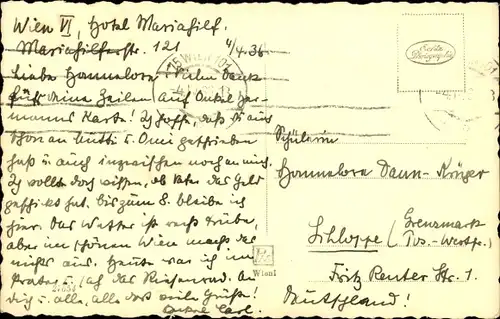 Wien VI, Hotel Mariahilf.
Mariahilferstr. 121 4/4.36
Liebe Hannelore! Vielen Dank
für deine Zeilen auf Onkel Her-
manns Karte! Ich hoffe, daß Du uns
schon an Mutti u. Omi geschrieben
hast u. auch inzwischen noch an mich.
Ich wollte doch wissen, ob Vater das Geld
geschickt hat. Bis zum 8. bleibe ich
hier. Das Wetter ist recht trübe,
aber im schönen Wien macht das
nichts aus. Heute war ich im
Prater u. sah das Riesenrad.
dich u. alle, alle dort viele Grüße!
Onkel Carl.
WIEN 101
Echte
Photographie
Schülerin
Hannelore Dann-Krüger
Schloppe (Grenzmark
Pos.-Westpr.)
Fritz Reuter Str. 1.
Deutschland!
Wien I